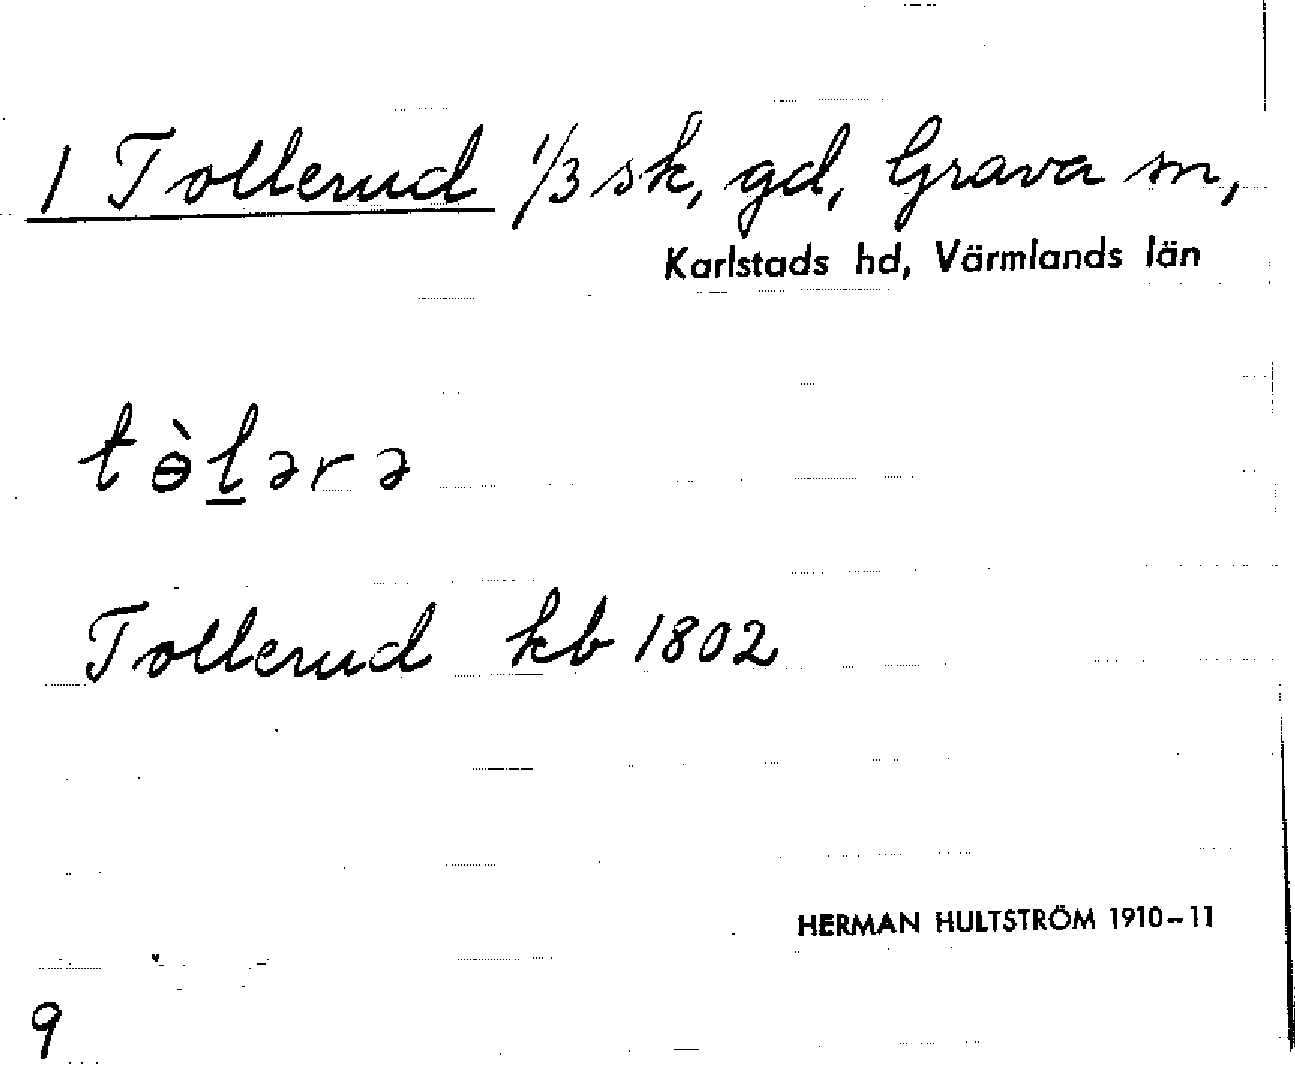 1 Tollerud 1/3 sk, gd, Grava sn,
Karlstads hd, Värmlands län
tɵ̀l̲ərə
Tollerud kb 1802
HERMAN HULTSTRÖM 1910–11
9